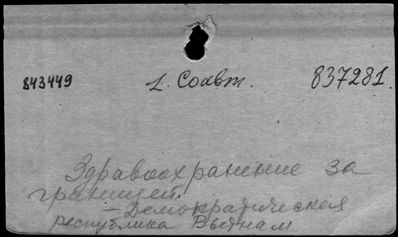 843449 1. Соавт. 837281.
Здравоохранение за
границей.
— Демократическая
республика Вьетнам